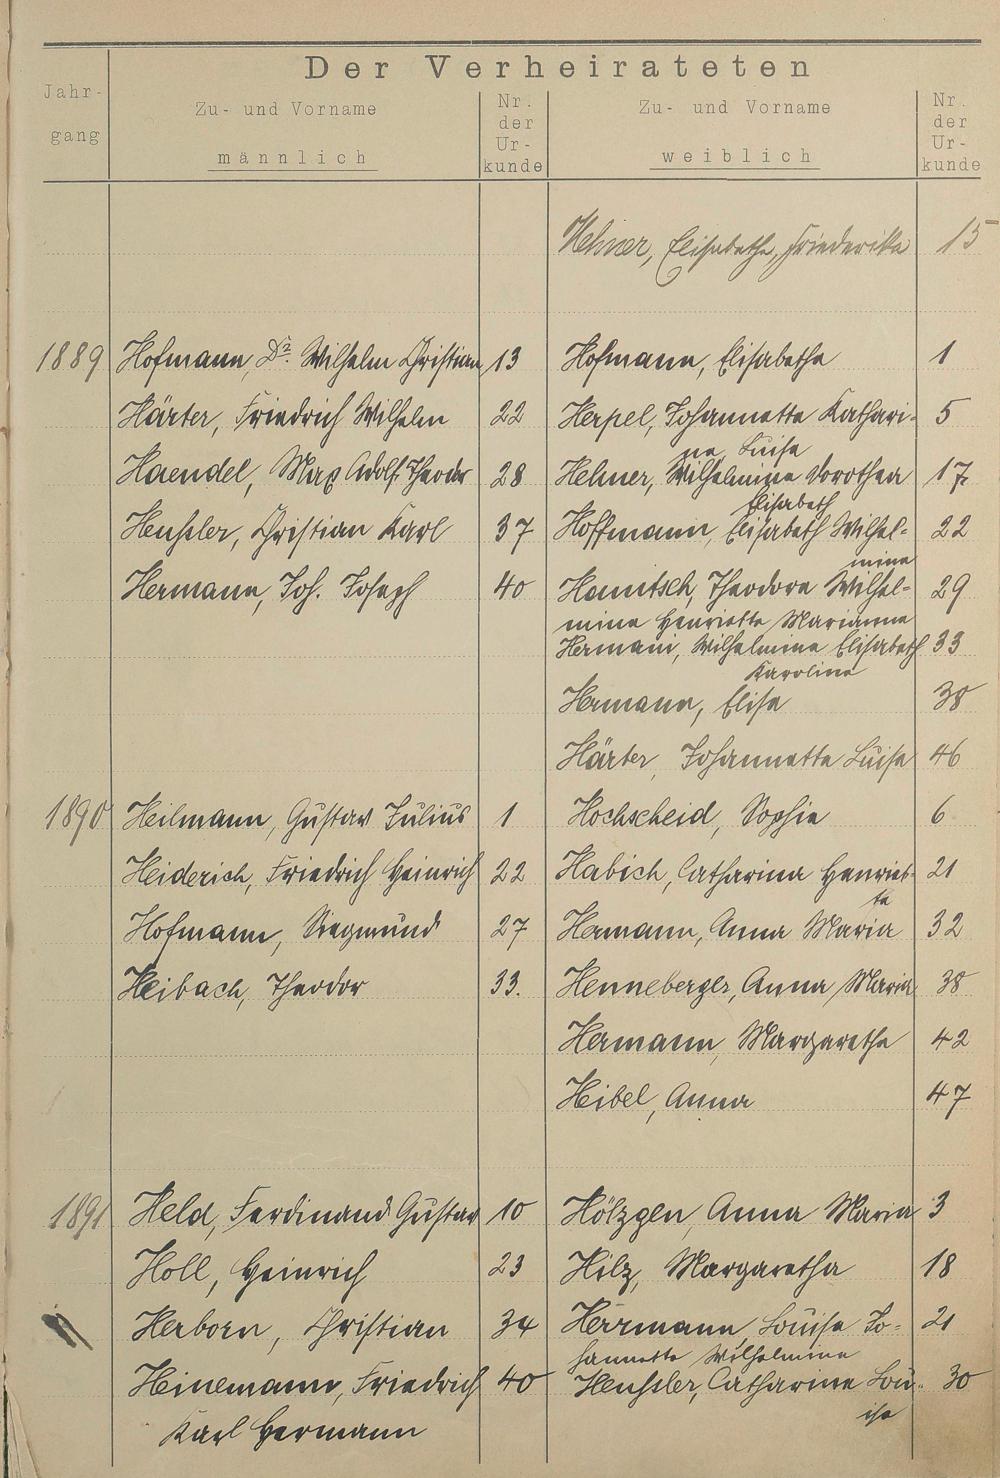 Der Verheirateten
Jahr-
gang
Zu- und Vorname
männlich
Nr.
der
Ur-
kunde
Zu- und Vorname
weiblich
Nr.
der
Ur-
kunde
Hehner, Elisabetha, Friederika 15
1889 Hofmann, Dr. Wilhelm Christian 13 Hofmann, Elisabetha 1
Härter, Friedrich Wilhelm 22 Herpel, Johannetta Kathari-
na, Luisa 5
Haendel, Max Adolf Theodor 28 Hehner, Wilhelmine Dorothea 17
Elisabeth
Heußler, Christian Karl 37 Hoffmann, Elisabeth Wilhel- 22
mine
Hermann, Joh. Joseph 40 Theodora Wilhel- 29
mine Henriette Marianne
Hermani, Wilhelmine Elisabeth 33
Karoline
Hermann, Elisa 38
Härter, Johannetta Luisa 46
1890 Heilmann, Gustav Julius 1 Hochscheid, Sophie 6
Heiderich, Friedrich Heinrich 22 Habich, Catharina Henriet- 21
ta
Hofmann, Siegmund 27 Hermann, Anna Maria 32
Heibach, Theodor 33. Henneberger, Anna Maria 38
Hermann, Margaretha 42
Heibel, Anna 47
1891 Held, Ferdinand Gustav 10 Hölzgen, Anna Maria 3
Holl, Heinrich 23 Hilz, Margaretha 18
Herborn, Christian 34 Herrmann, Louise Jo- 21
hannette Wilhelmine
Heinemann, Friedrich 40 Heußler, Catharine Lou- 30
ise
Karl Hermann